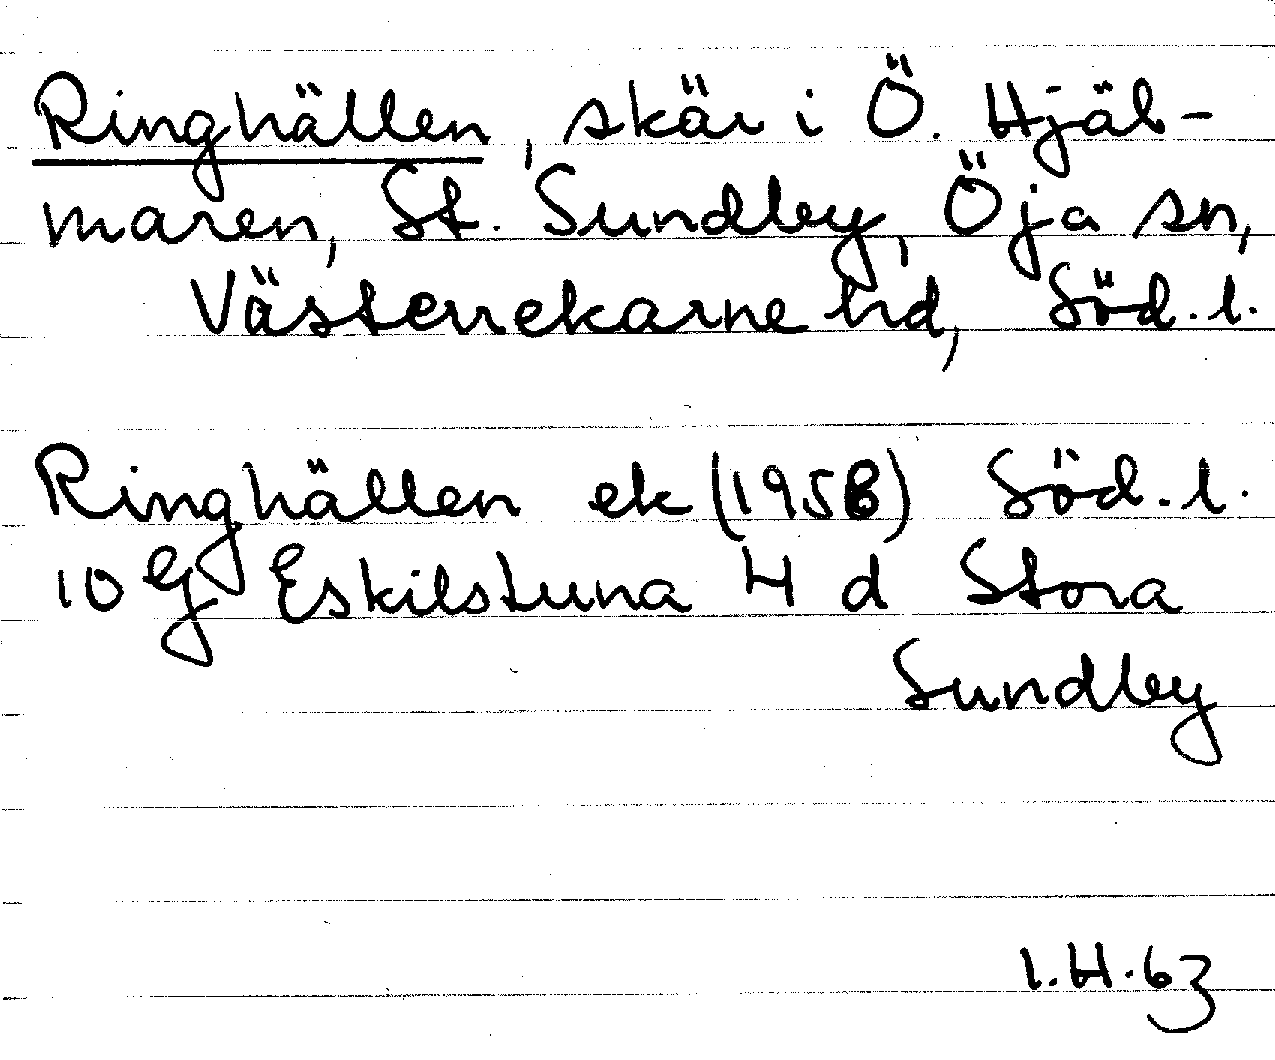 Ringhällen, skär i Ö. Hjäl-
maren, St. Sundby, Öja sn,
Västerrekarne hd, Söd. l.
Ringhällen ek (1958) Söd. l.
10 G Eskilstuna 4 d Stora
Sundby
I.H. 63